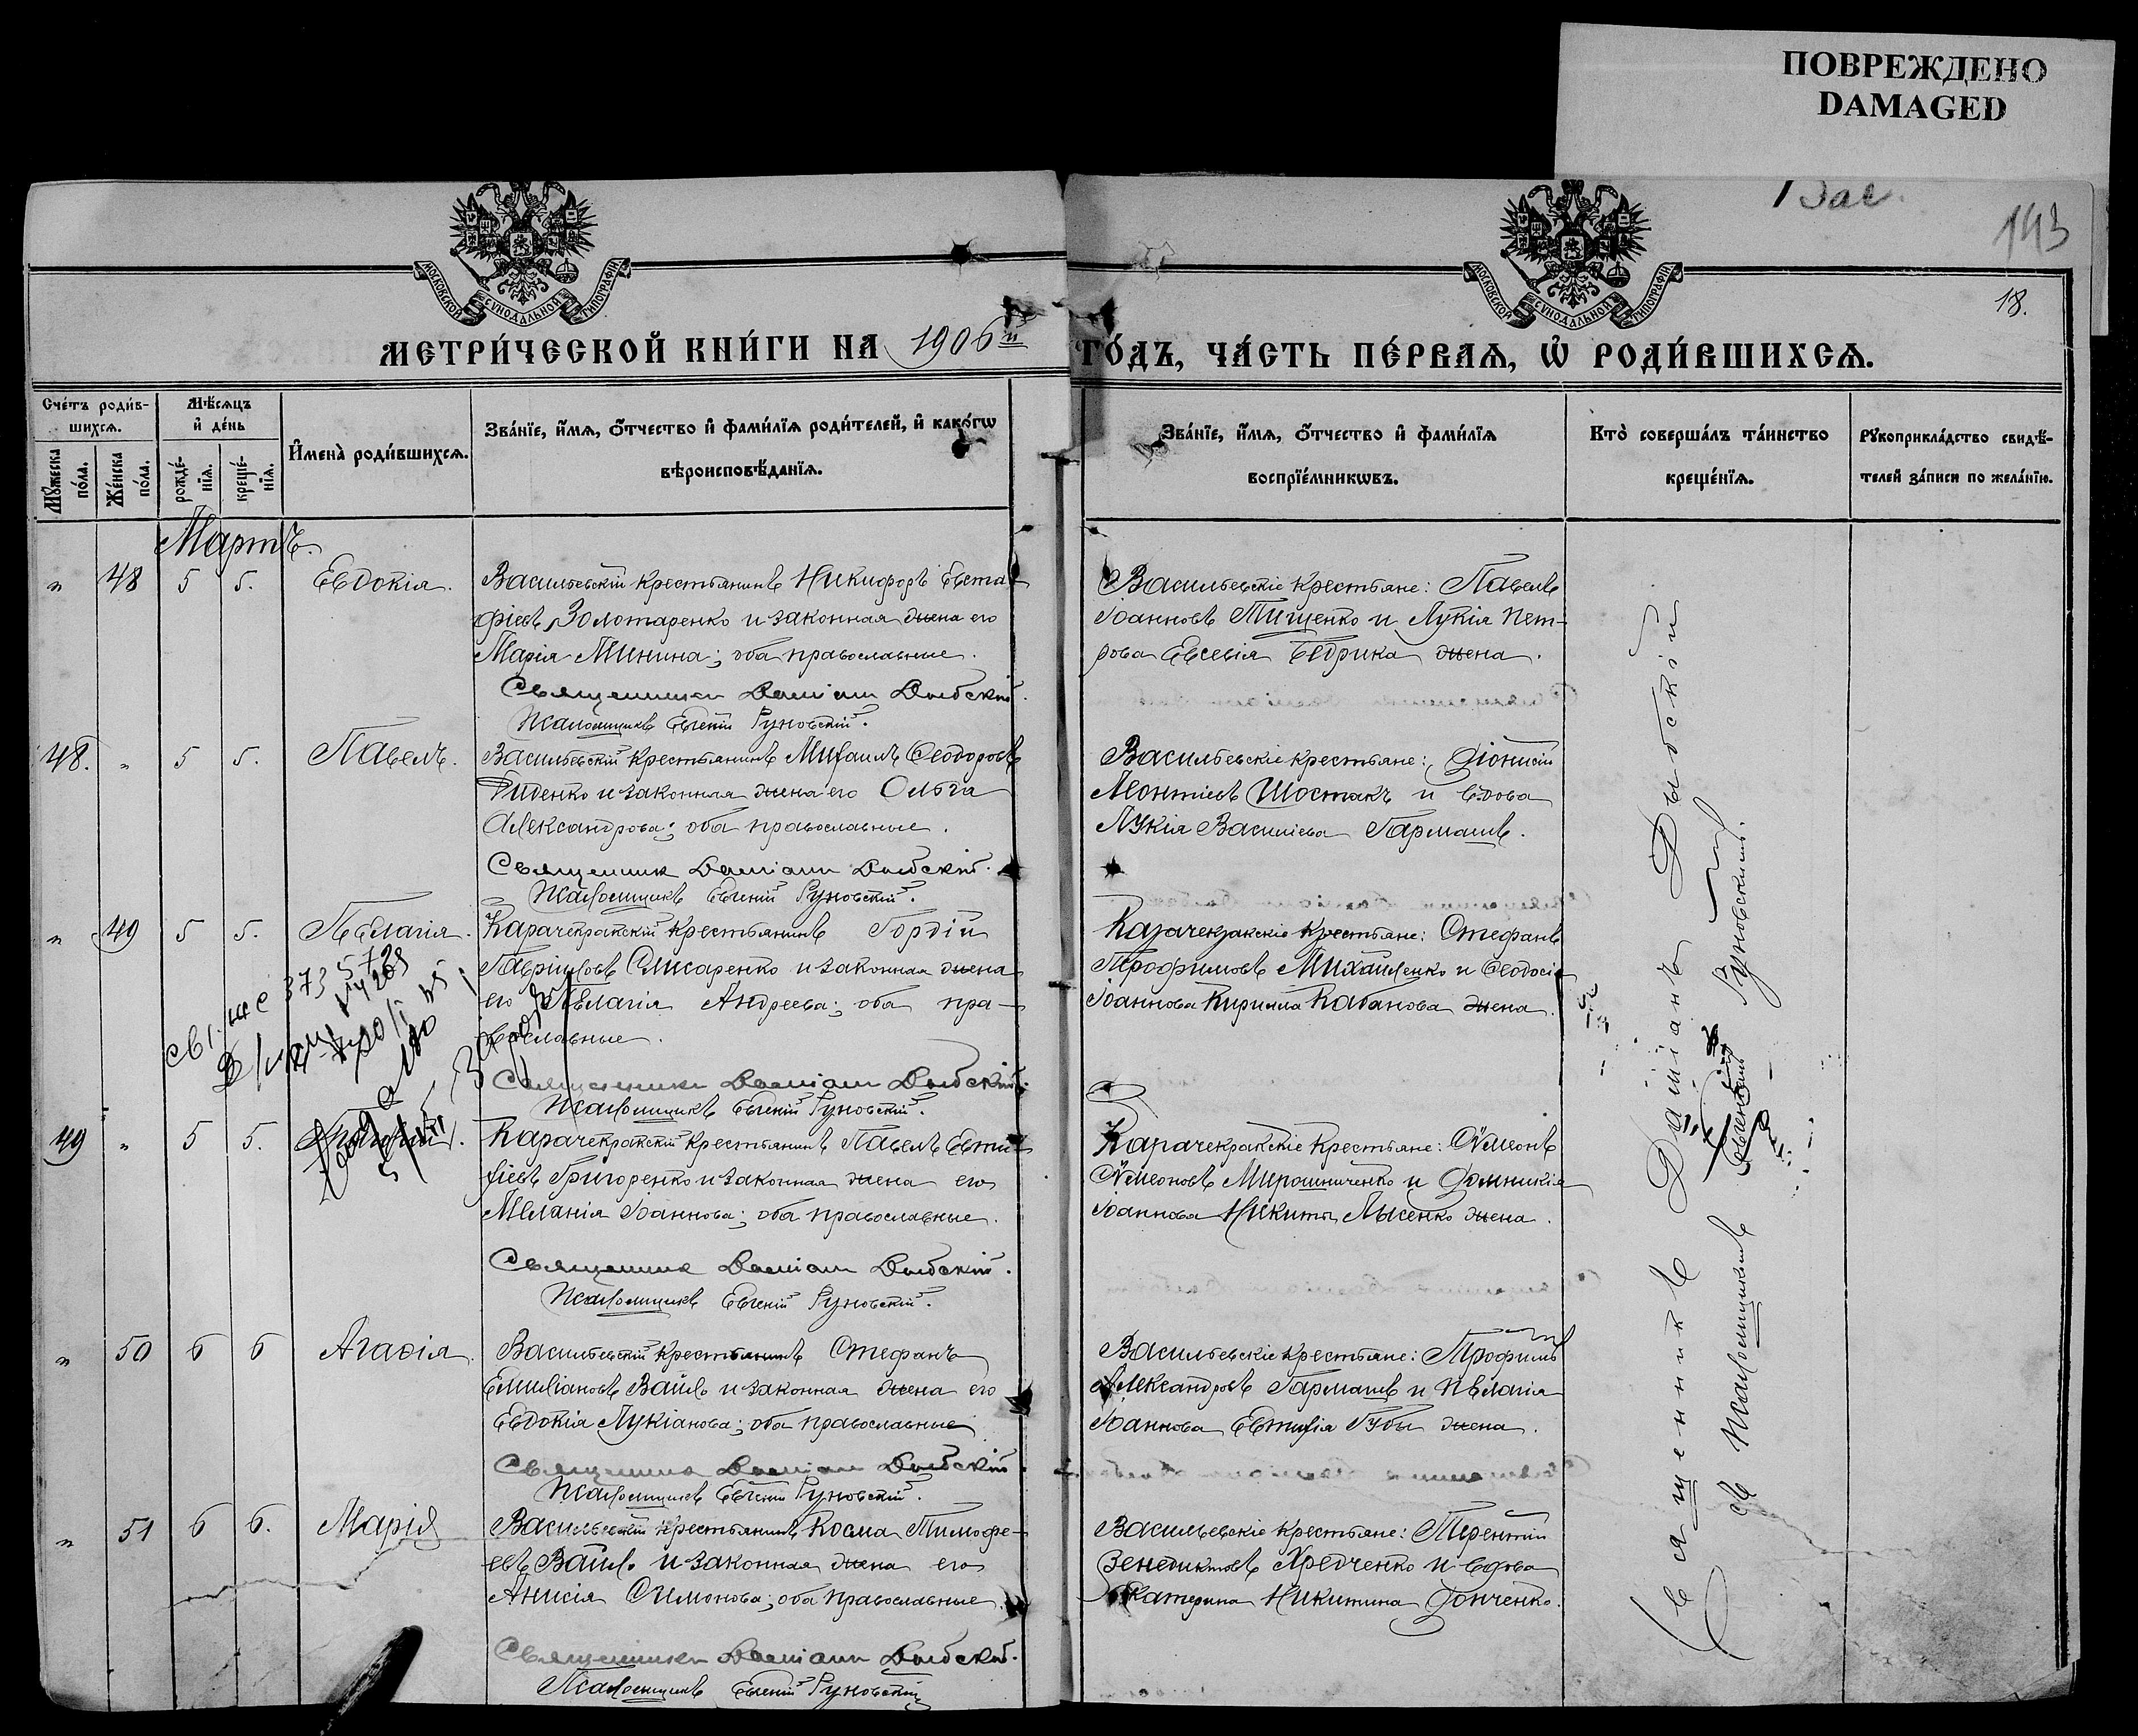 ПОВРЕЖДЕНО
DAMAGED
143
18.
МОСКОВСКОЙ СѴНОДАЛЬНОЙ ТИПОГРАФІИ
МОСКОВСКОЙ СѴНОДАЛЬНОЙ ТИПОГРАФІИ
МЕТРИ́ЧЕСКОЙ КНИ́ГИ НА 1906й ГО́ДЪ, ЧА́СТЬ ПЕ́РВАѦ, Ѡ҆ РОДИ́ВШИХСѦ.
Сче́тъ роди́в-
шихсѧ.
Мꙋ́жеска по́ла.
Же́нска по́ла.
Мѣ́сѧцъ
и҆ де́нь
рожде́-
нїѧ.
креще́-
нїѧ.
И҆мена̀ роди́вшихсѧ.
Зва́нїе, и҆́мѧ, ѻ҆́тчество и҆ фами́лїѧ роди́телей, и҆ како́гѡ
вѣроисповѣ́данїѧ.
Зва́нїе, и҆́мѧ, ѻ҆́тчество и҆ фами́лїѧ
воспрїе́мникѡвъ.
Кто̀ соверша́лъ та́инство
креще́нїѧ.
Рꙋкоприкла́дство свидѣ́-
телей за́писи по жела́нїю.
Мартъ.
" 48 5 5. Евдокія. Васильевскій крестьянинъ Никифоръ Евста-
фіевъ Золотаренко и законная жена его
Марія Минина; оба православные.
Священникъ Даміанъ Дыбскій.
Псаломщикъ Евгеній Гуновскій.
Васильевскіе крестьяне: Павелъ
Іоанновъ Тищенко и Лукія Пет-
рова Евсевія Бедрика жена.
48. " 5 5. Павелъ. Васильевскій крестьянинъ Михаилъ Ѳеодоровъ
Диденко и законная жена его Ольга
Александрова; оба православные.
Священникъ Даміанъ Дыбскій.
Псаломщикъ Евгеній Гуновскій.
Васильевскіе крестьяне: Діонисій
Леонтіевъ Шостакъ и вдова
Лукія Васильева Гармашъ.
" 49 5 5. Пелагія. Карачекракскій крестьянинъ Гордій
Гавріиловъ Слисаренко и законная жена
его Пелагія Андреева; оба пра-
вославные.
Священникъ Даміанъ Дыбскій.
Псаломщикъ Евгеній Гуновскій.
Карачекракскіе крестьяне: Стефанъ
Трофимовъ Михайленко и Ѳеодосія
Іоаннова Кирилла Кабанова жена.
49 " 5 5. Карачекракскій крестьянинъ Павелъ Евти-
хіевъ Григоренко и законная жена его
Меланія Іоаннова; оба православные.
Священникъ Даміанъ Дыбскій.
Псаломщикъ Евгеній Гуновскій.
Карачекракскіе крестьяне: Сѵмеонъ
Сѵмеоновъ Мирошниченко и Домникія
Іоаннова Никиты Лысенко жена.
" 50 6 6 Агафія. Васильевскій крестьянинъ Стефанъ
Емиліановъ Вайло и законная жена его
Евдокія Лукіанова; оба православные
Священникъ Даміанъ Дыбскій.
Псаломщикъ Евгеній Гуновскій.
Васильевскіе крестьяне: Трофимъ
Александровъ Гармашъ и Пелагія
Іоаннова Евтихія Губы жена.
" 51 6 6. Марія Васильевскій крестьянинъ Косма Тимофе-
евъ Вайло и законная жена его
Анисія Симонова; оба православные.
Священникъ Даміанъ Дыбскій.
Псаломщикъ Евгеній Гуновскій
Васильевскіе крестьяне: Терентій
Венедиктовъ Хредченко и вдова
Екатерина Никитина Донченко.
Священникъ Даміанъ Дыбскій
съ псаломщикомъ Гуновскимъ.